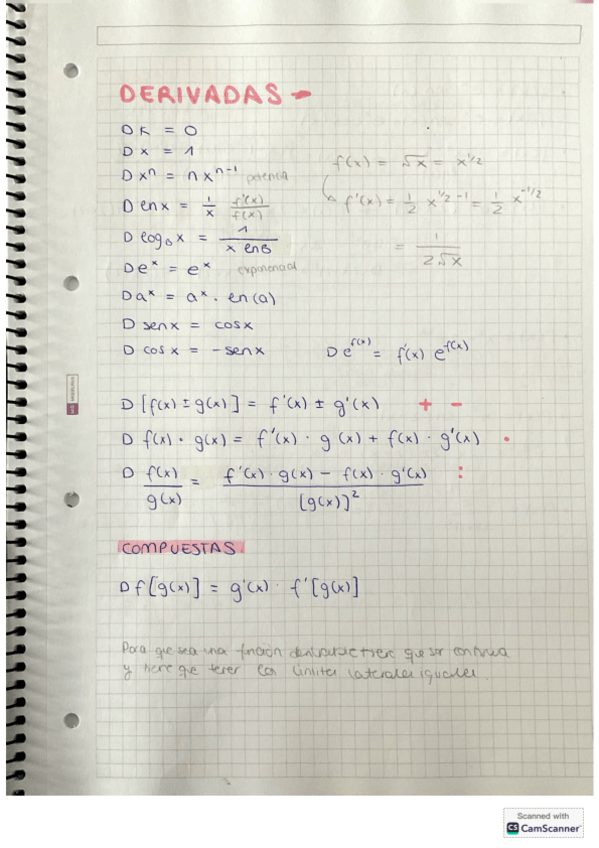 DERIVADAS -
D K = 0
D x = 1
D xⁿ = n xⁿ⁻¹ potencia
f(x) = √x = x^1/2
f'(x) = 1/2 x^1/2 -1 = 1/2 x^-1/2
= 1/2√x
D ln x = 1/x f'(x)/f(x)
D log_b x = 1/x ln b
D eˣ = eˣ exponencial
D aˣ = aˣ . ln (a)
D sen x = cos x
D cos x = - sen x
D e^f(x) = f'(x) e^f(x)
D [f(x) ± g(x)] = f'(x) ± g'(x) + -
D f(x) · g(x) = f'(x) · g(x) + f(x) · g'(x) ·
D f(x)/g(x) = f'(x) · g(x) - f(x) · g'(x)/[g(x)]² :
COMPUESTAS
D f[g(x)] = g'(x) · f'[g(x)]
Para que sea una función derivable tiene que ser continua
y tiene que tener los límites laterales iguales.
Scanned with
CS CamScanner